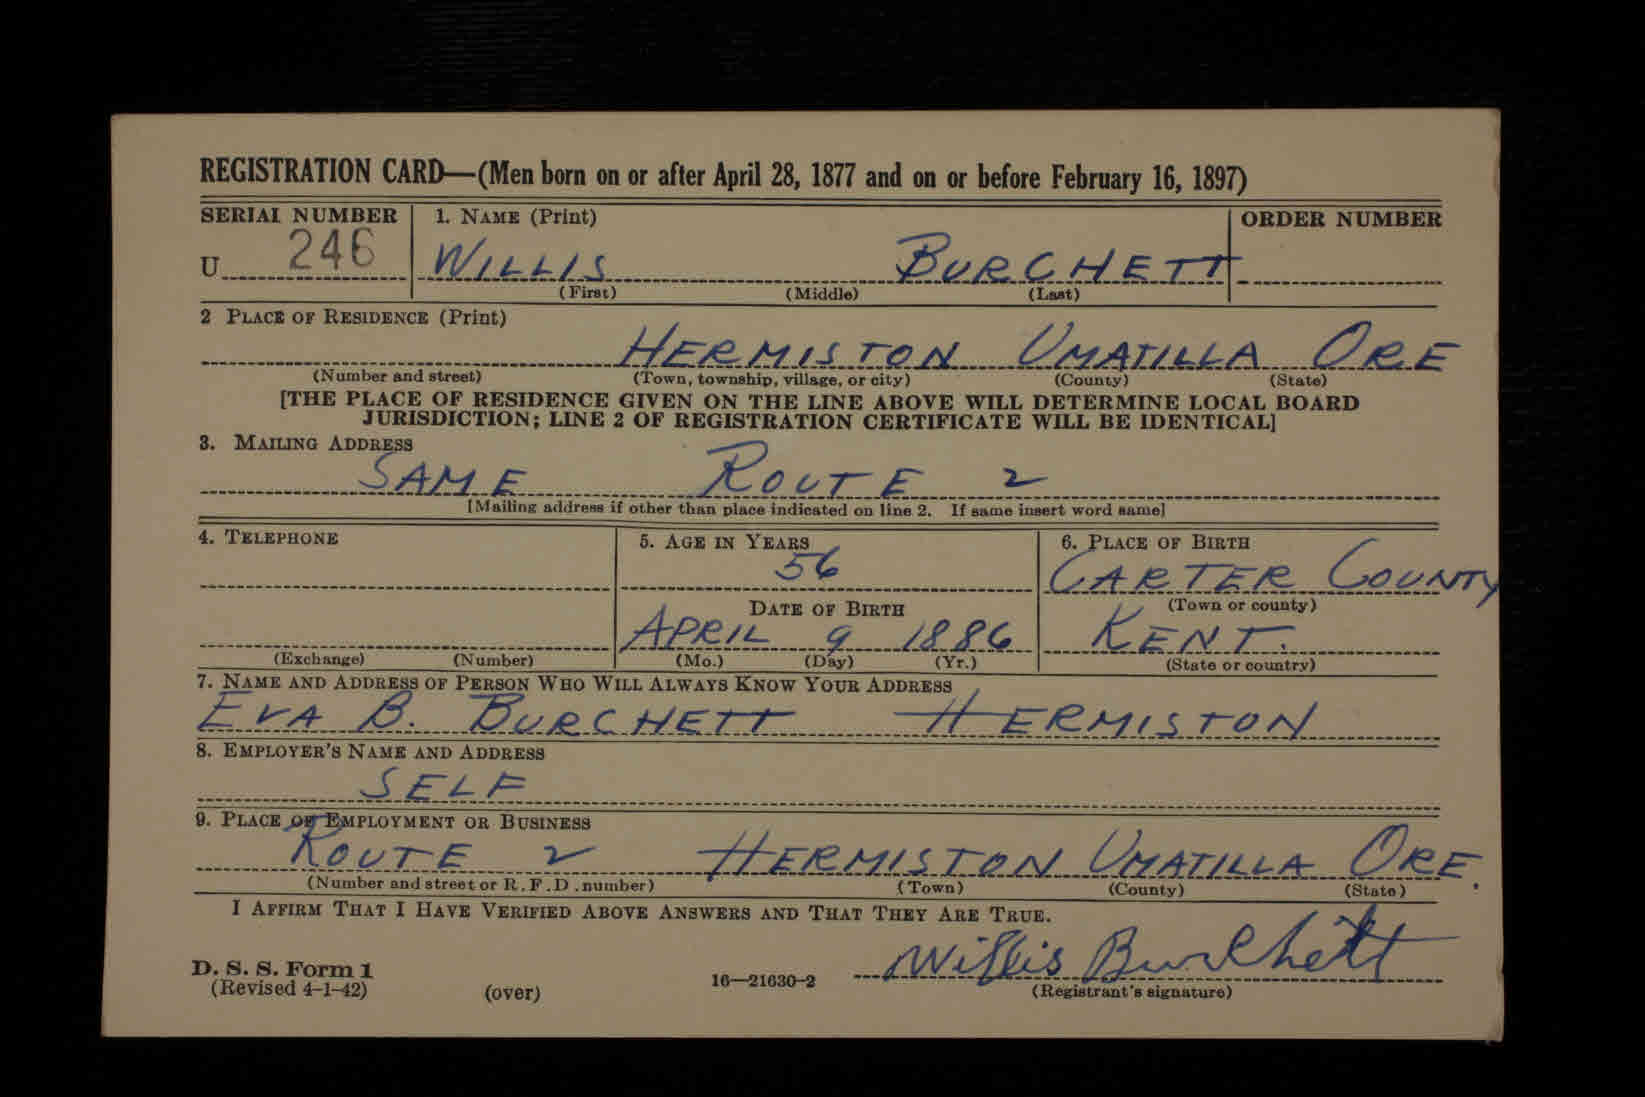 REGISTRATION CARD—(Men born on or after April 28, 1877 and on or before February 16, 1897)
SERIAL NUMBER 1. NAME (Print) ORDER NUMBER
U 246 WILLIS BURCHETT
(First) (Middle) (Last)
2 PLACE OF RESIDENCE (Print)
HERMISTON UMATILLA ORE
(Number and street) (Town, township, village, or city) (County) (State)
[THE PLACE OF RESIDENCE GIVEN ON THE LINE ABOVE WILL DETERMINE LOCAL BOARD
JURISDICTION; LINE 2 OF REGISTRATION CERTIFICATE WILL BE IDENTICAL]
3. MAILING ADDRESS
SAME ROUTE 2
[Mailing address if other than place indicated on line 2. If same insert word same]
4. TELEPHONE 5. AGE IN YEARS 6. PLACE OF BIRTH
56 CARTER COUNTY
DATE OF BIRTH (Town or county)
APRIL 9 1886 KENT.
(Exchange) (Number) (Mo.) (Day) (Yr.) (State or country)
7. NAME AND ADDRESS OF PERSON WHO WILL ALWAYS KNOW YOUR ADDRESS
EVA B. BURCHETT HERMISTON
8. EMPLOYER'S NAME AND ADDRESS
SELF
9. PLACE OF EMPLOYMENT OR BUSINESS
ROUTE 2 HERMISTON UMATILLA ORE.
(Number and street or R.F.D. number) (Town) (County) (State)
I AFFIRM THAT I HAVE VERIFIED ABOVE ANSWERS AND THAT THEY ARE TRUE.
Willis Burchett
D. S. S. Form 1
(Revised 4-1-42) (over) 16—21630-2 (Registrant's signature)